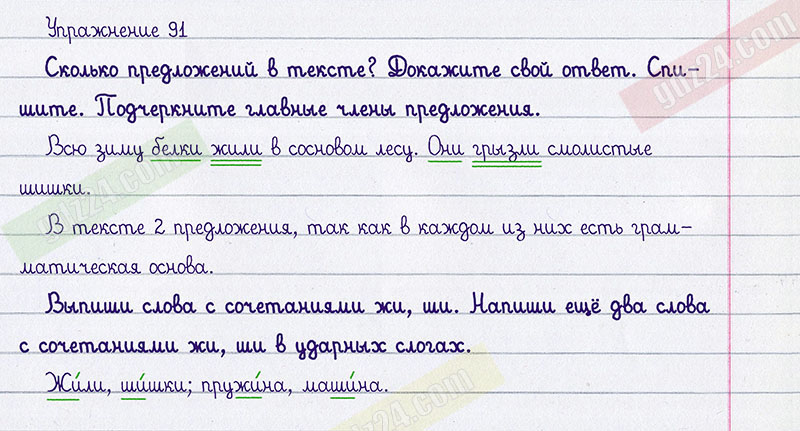 Упражнение 91
Сколько предложений в тексте? Докажите свой ответ. Спи-
шите. Подчеркните главные члены предложения.
Всю зиму белки жили в сосновом лесу. Они грызли смолистые
шишки.
В тексте 2 предложения, так как в каждом из них есть грам-
матическая основа.
Выпиши слова с сочетаниями жи, ши. Напиши ещё два слова
с сочетаниями жи, ши в ударных слогах.
Жи́ли, ши́шки; пружи́на, маши́на.
gdz24.com
gdz24.com
gdz24.com